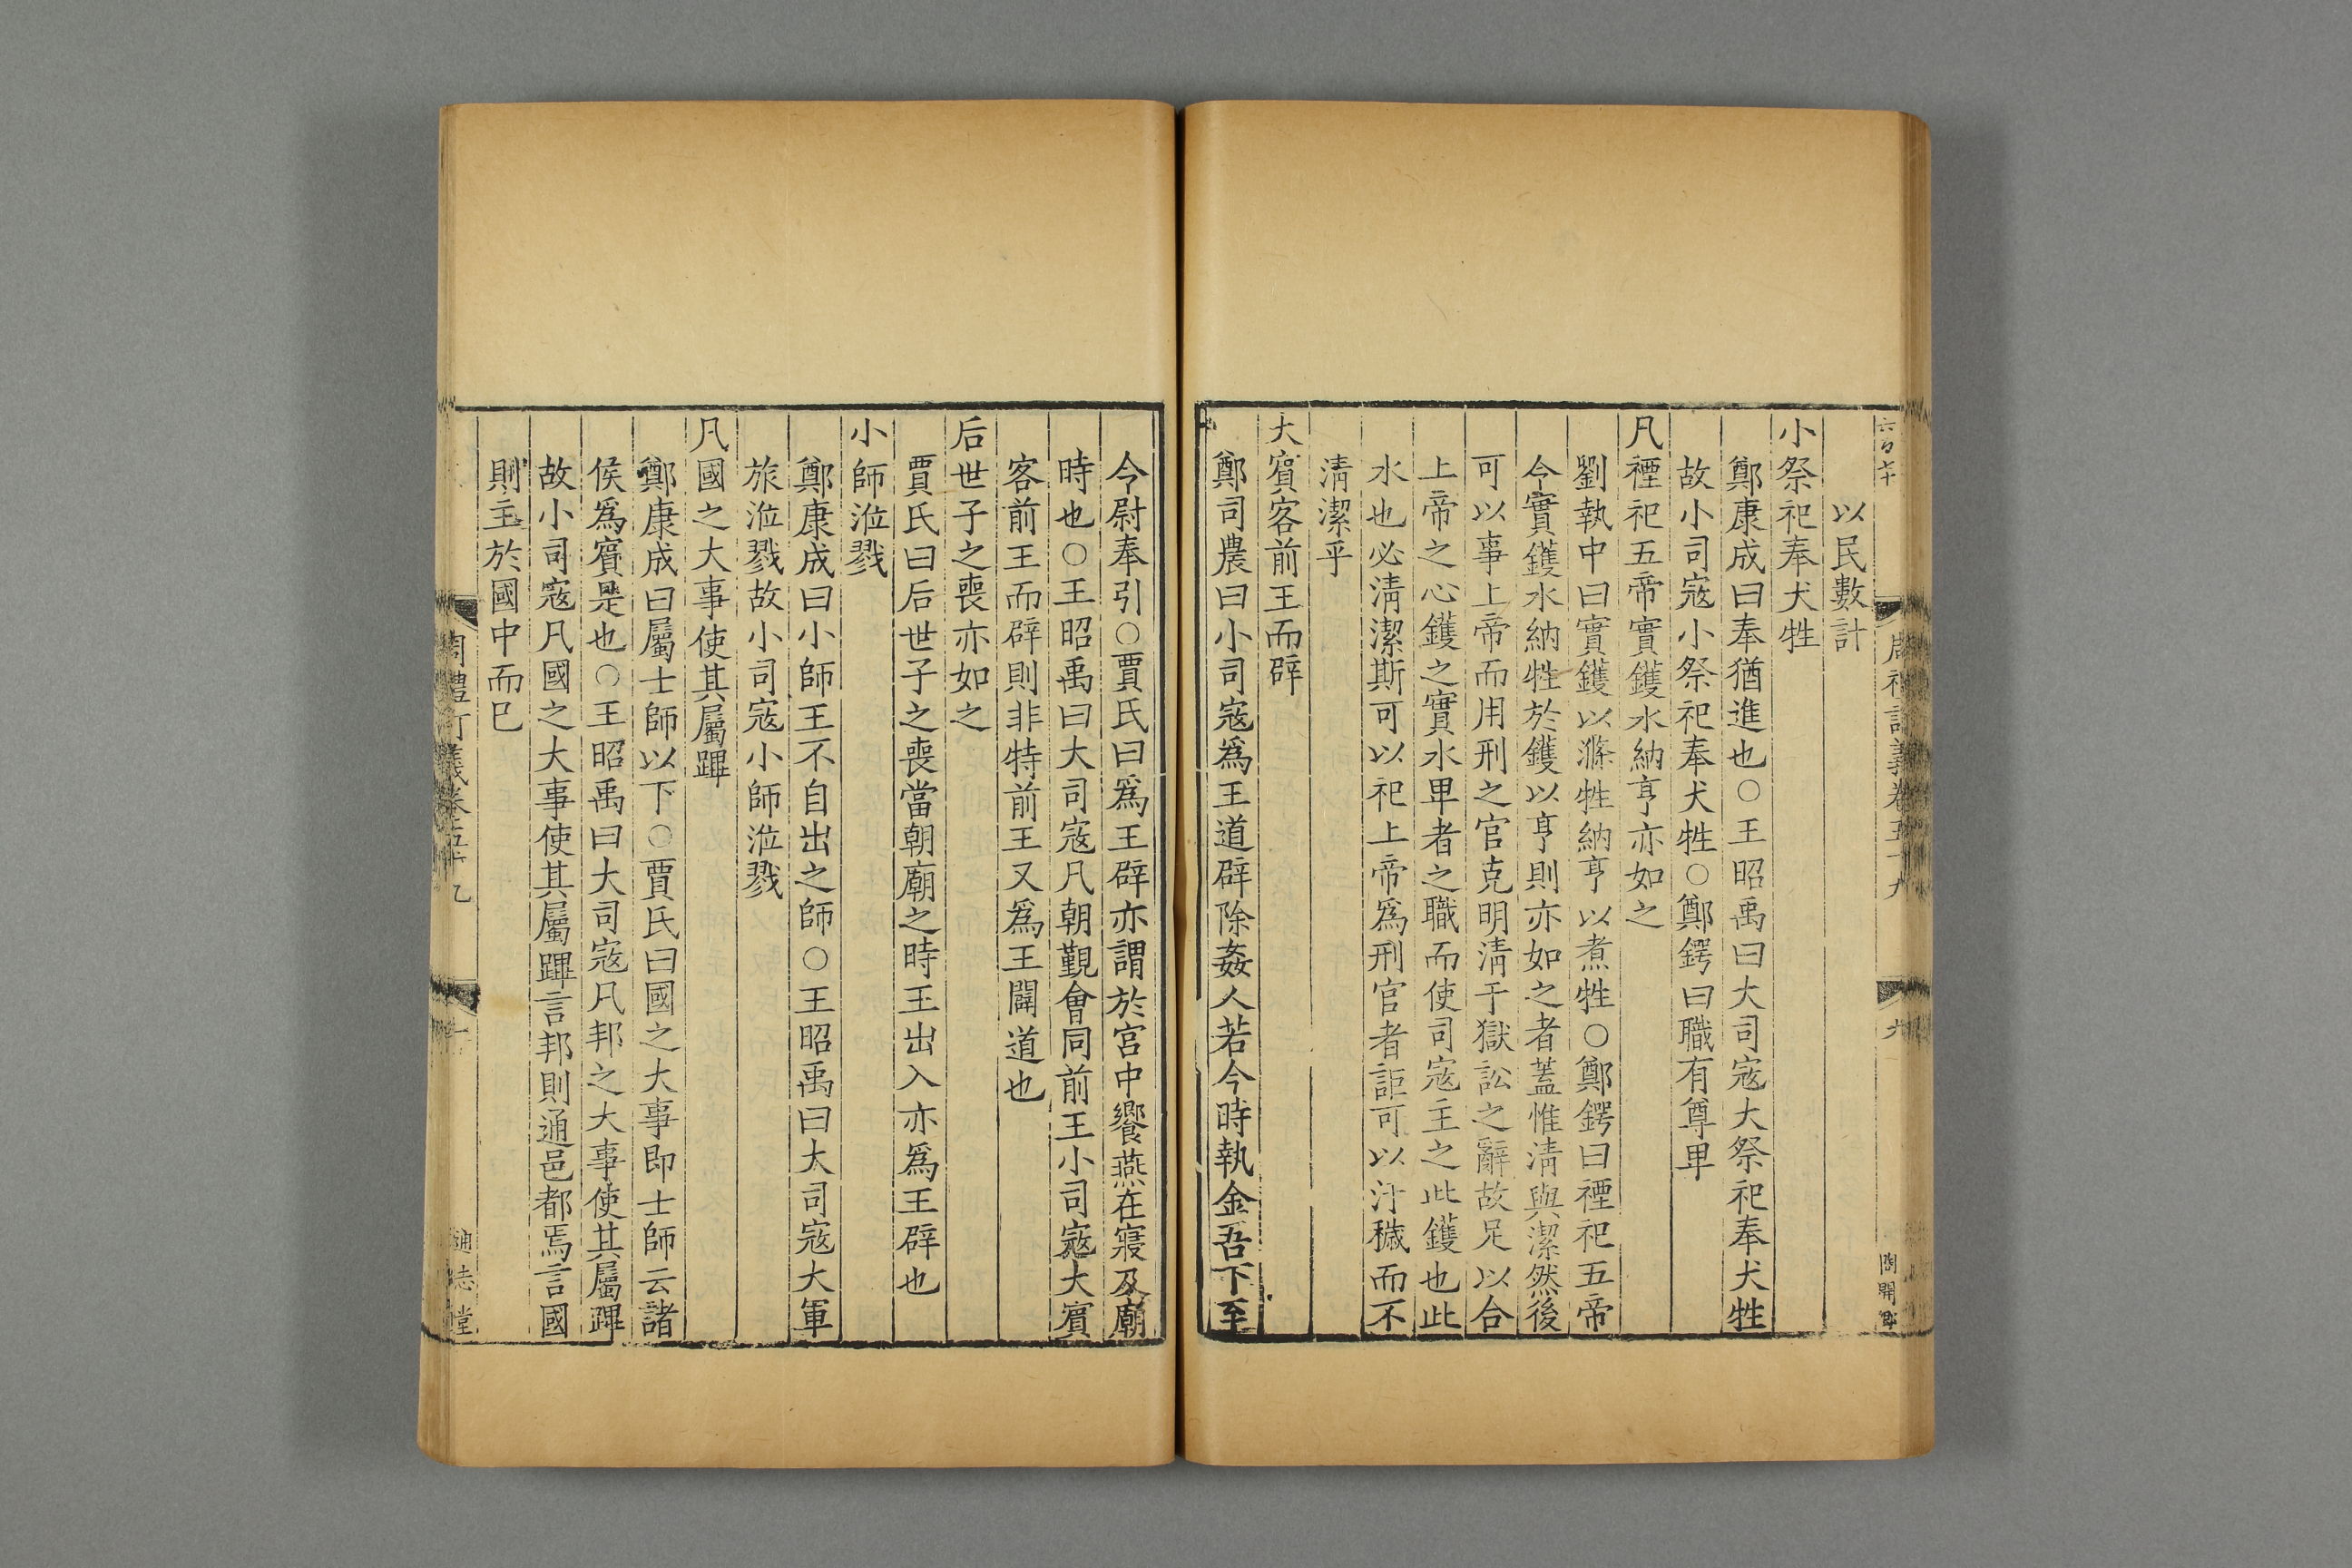 以民數計
小祭祀奉犬牲
鄭康成曰奉猶進也○王昭禹曰大司寇大祭祀奉犬牲
故小司寇小祭祀奉犬牲○鄭鍔曰職有尊卑
凡禋祀五帝實鑊水納亨亦如之
劉執中曰實鑊以滌牲納亨以煮牲○鄭鍔曰禋祀五帝
令實鑊水納牲於鑊以亨則亦如之者蓋惟淸與潔然後
可以事上帝而用刑之官克明淸于獄訟之辭故足以合
上帝之心鑊之實水卑者之職而使司寇主之此鑊也此
水也必淸潔斯可以祀上帝爲刑官者詎可以汙穢而不
淸潔乎
大賓客前王而辟
鄭司農曰小司寇爲王道辟除姦人若今時執金吾下至
令尉奉引○賈氏曰爲王辟亦謂於宮中饗燕在寢及廟
時也○王昭禹曰大司寇凡朝覲會同前王小司寇大賓
客前王而辟則非特前王又爲王闢道也
后世子之喪亦如之
賈氏曰后世子之喪當朝廟之時王出入亦爲王辟也
小師涖戮
鄭康成曰小師王不自出之師○王昭禹曰大司寇大軍
旅涖戮故小司寇小師涖戮
凡國之大事使其屬蹕
鄭康成曰屬士師以下○賈氏曰國之大事即士師云諸
侯爲賓是也○王昭禹曰大司寇凡邦之大事使其屬蹕
故小司寇凡國之大事使其屬蹕言邦則通邑都焉言國
則主於國中而已
周禮訂義卷五十九
通志堂